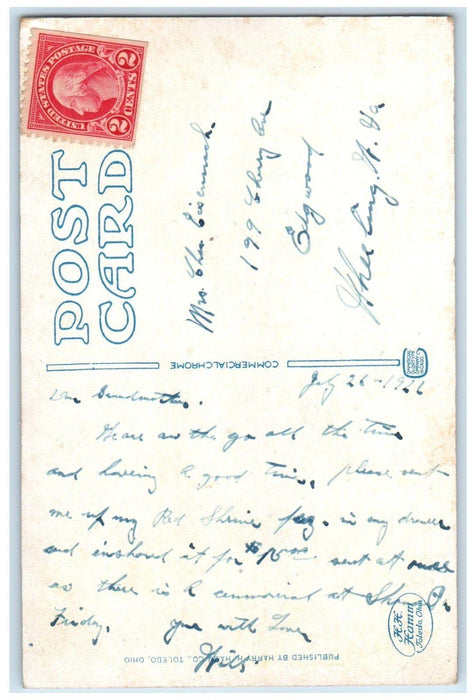 UNITED STATES POSTAGE
2 CENTS 2
POST
CARD
Mrs. Chas.
199 Cherry Ave
Edgwood
Wheeling, W. Va
COMMERCIALCHROME
July 26 - 1926
Dear Grandmother.
are on the go all the time
and having a good time, please send
me up my Red Shrine fez. in my drawer
and it for $15.00 sent at once
as there is a ceremonial at
Friday. your with Love
H.H.
Hamm
Toledo, Ohio
PUBLISHED BY HARRY H. HAMM CO., TOLEDO, OHIO